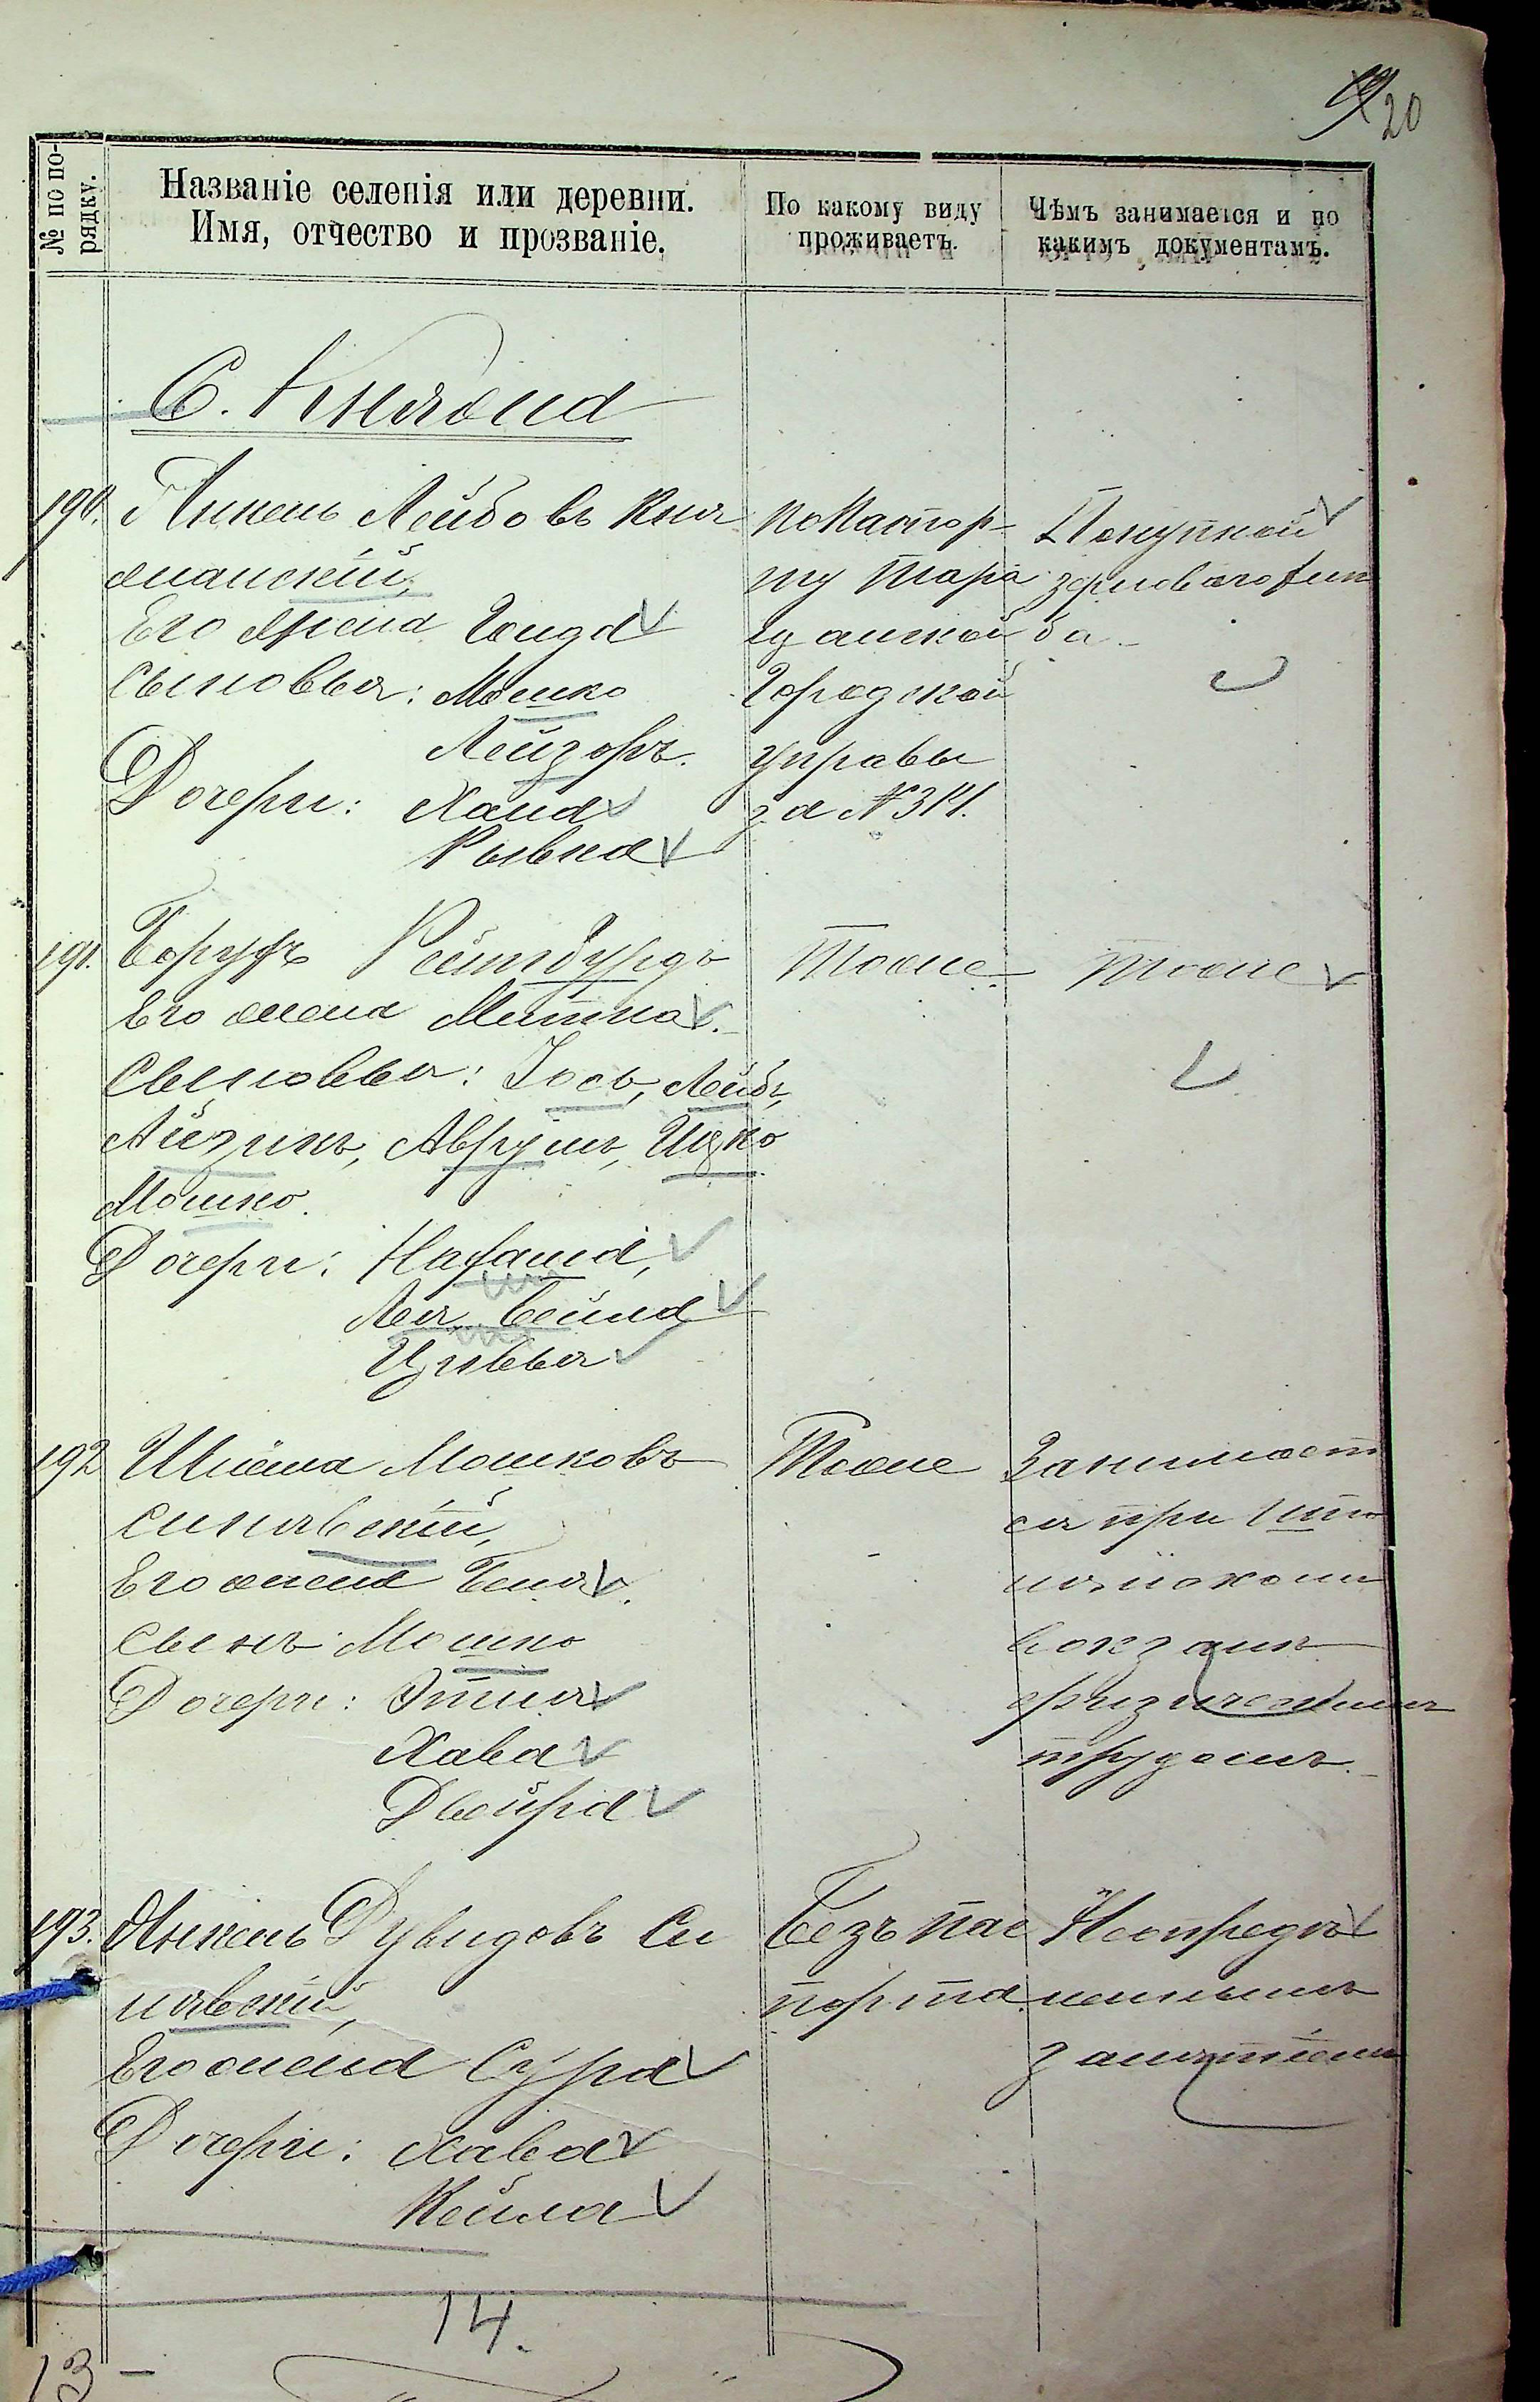 20
№ по по-
рядку.
Названіе селенія или деревни.
Имя, отчество и прозваніе.
По какому виду
проживаетъ.
Чѣмъ занимается и по
какимъ документамъ.
С. Княжна
190. Янкель Лейбовъ Кня
жанскій,
Его жена Гонда
Сыновья: Мошко
Лейзоръ.
Дочери: Хана
Рывка
по Паспор-
ту Тара
щанской
Городской
управы
за № 314.
Покупкой
зерноваго хлѣ
ба.
191. Борухъ Рейтбурдъ
Его жена Митка.
Сыновья: Іось, Лейбъ,
Айзикъ, Аврумъ, Ицко
Мошко.
Дочери:
Лея, Бейла
Цивья
Тоже
Тоже
192 Шлёма Мошковъ
Синявскій,
Его жена Беня.
Сынъ Мошко
Дочери: Этля
Хава
Двойра
Тоже
Занимает
ся при
вокзалѣ
физическимъ
трудомъ.
193. Янкель Дувидовъ Си
нявскій,
Его жена Сура
Дочери: Хава
Кейла
Безъ пас
порта
Неопредѣ
леннымъ
занятіемъ
14.
13 –